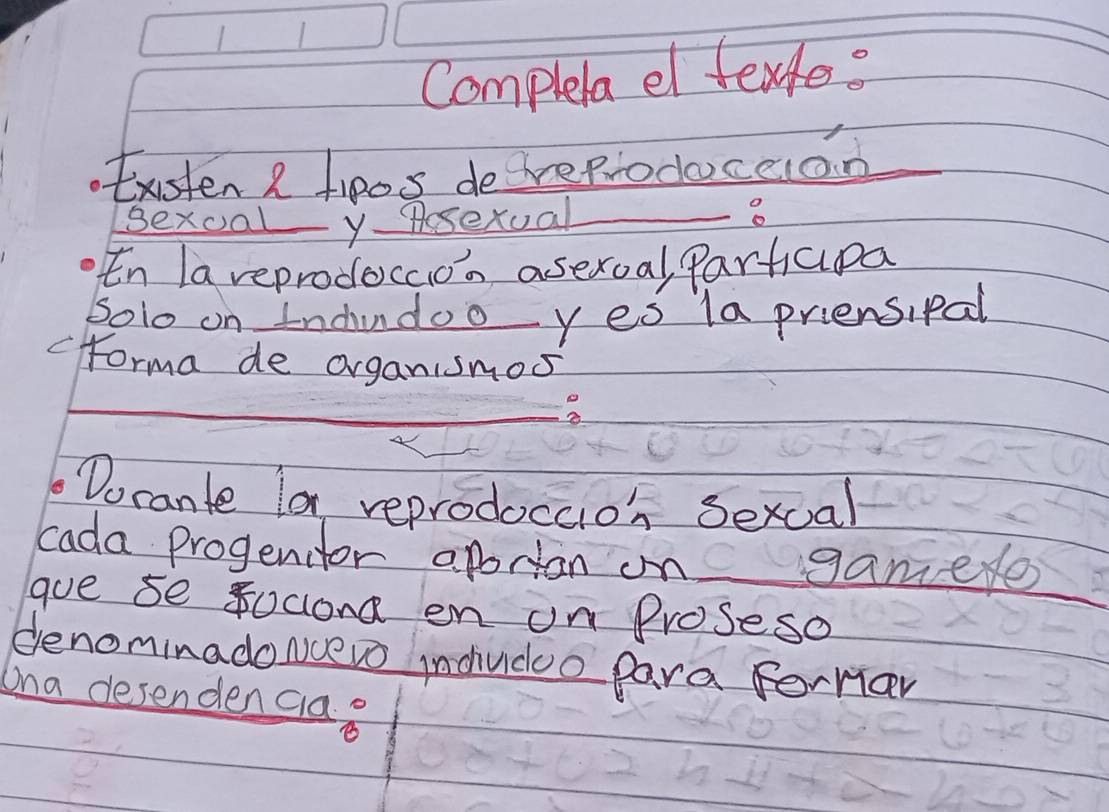 Completa el texto:
Existen 2 tipos de reprodoccción
sexoal y Asexual :
En la reprodocción asexoal, Participa
Solo on Indivdoo y es la priensipal
forma de organismos
:
Dorante la reprodocción Sexoal
cada Progenitor aportan on gameto
que se fociona en on Proseso
denominado Nuevo individoo para Formar
Una desendencia :